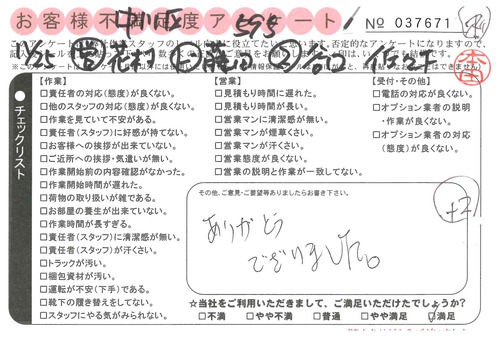 お客様不満足度アンケート
№ 037671
チェックリスト
【作業】
□責任者の対応(態度)が良くない。
□他のスタッフの対応(態度)が良くない。
□作業を見ていて不安がある。
□責任者(スタッフ)に好感が持てない。
□お客様への挨拶が出来ていない。
□ご近所への挨拶・気遣いが無い。
□作業開始前の内容確認がなかった。
□作業開始時間が遅れた。
□荷物の取り扱いが雑である。
□お部屋の養生が出来ていない。
□作業時間が長すぎる。
□責任者(スタッフ)に清潔感が無い。
□責任者(スタッフ)が汗くさい。
□トラックが汚い。
□梱包資材が汚い。
□運転が不安(下手)である。
□靴下の履き替えをしてない。
□スタッフにやる気がみられない。
【営業】
□見積もり時間に遅れた。
□見積もり時間が長い。
□営業マンに清潔感が無い。
□営業マンが煙草くさい。
□営業マンが汗くさい。
□営業態度が良くない。
□営業の説明と作業が一致してない。
【受付・その他】
□電話の対応が良くない。
□オプション業者の説明
・作業が良くない。
□オプション業者の対応
(態度)が良くない。
その他、ご意見・ご要望等ありましたらお書き下さい。
ありがとう
ございました。
+2
☆当社をご利用いただきまして、ご満足いただけたでしょうか?
□不満 □やや不満 □普通 □やや満足 ☑満足